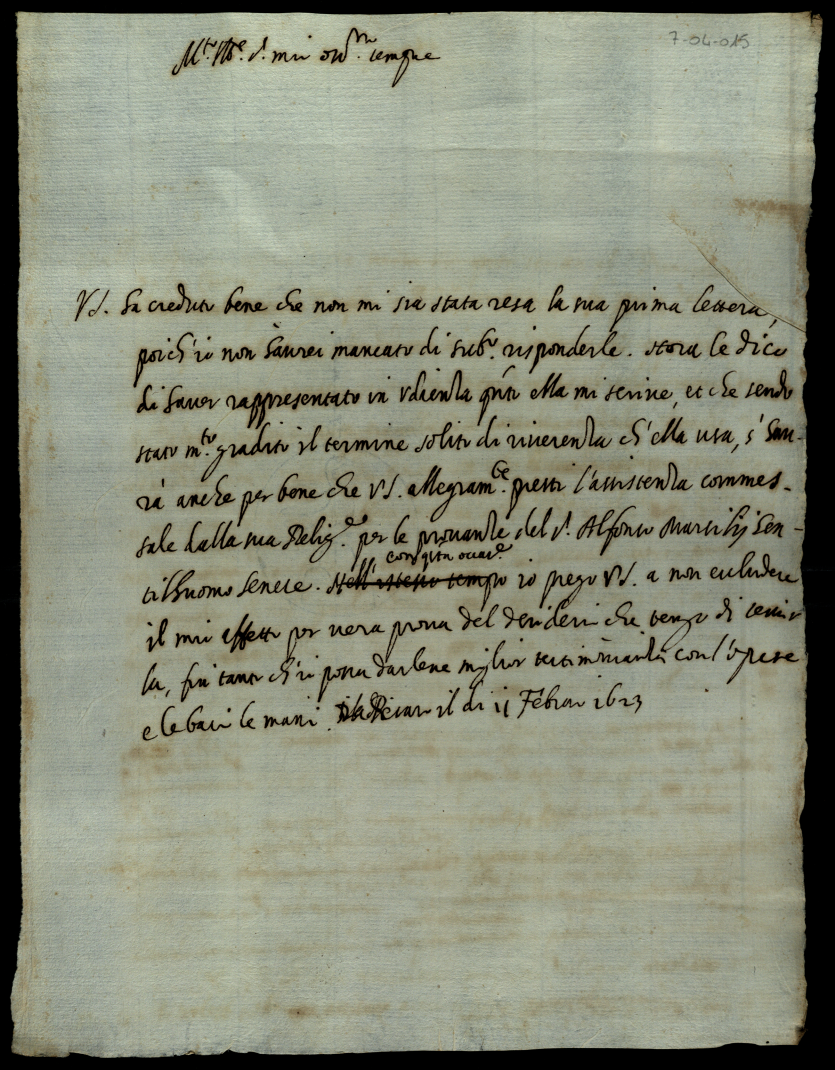 7-04-015
Mto. Ill.e s.r mio oss.mo sempre
VS. ha creduto bene che non mi sia stata resa la sua prima lettera,
poich'io non haurei mancato di sub.o risponderle. Hora le dico
di hauer rappresentato in Udienza q.to ella mi scriue, et che sendo
stato m.to gradito il termine solito di riuerenza ch'ella usa, s'hau-
rà anche per bene che VS. allegram.te presti l'assistenza commes-
sale dalla sua Relig.e per le prouanze del s.r Alfonso Marsilij Gen-
til'huomo Senese. con q.ta occas.e
Nell'istesso tempo io prego VS. a non escludere
il mio affetto per uera proua del desiderio che tengo di seruir
la, fin tanto ch'io possa darlene miglior testimonianza con l'opere
e le bacio le mani. il di 11 Febraro 1623